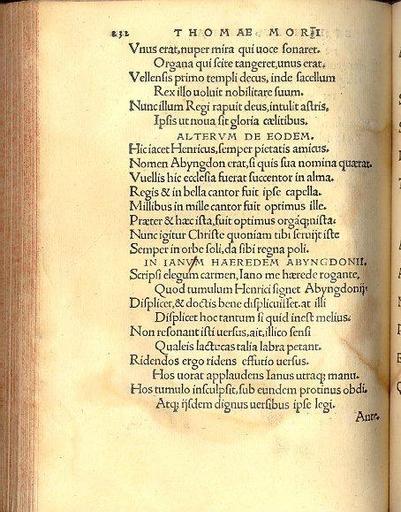 232 THOMAE MORI
Vnus erat, nuper mira qui uoce sonaret.
Organa qui scite tangeret, unus erat.
Vellensis primo templi decus, inde sacellum
Rex illo uoluit nobilitare suum.
Nunc illum Regi rapuit deus, intulit astris,
Ipsis ut noua sit gloria cælitibus.
ALTERVM DE EODEM.
Hic iacet Henricus, semper pietatis amicus.
Nomen Abyngdon erat, si quis sua nomina quærat.
Vuellis hic ecclesia fuerat succentor in alma.
Regis & in bella cantor fuit ipse capella.
Millibus in mille cantor fuit optimus ille.
Præter & hæc ista, fuit optimus orgaq;nista.
Nunc igitur Christe quoniam tibi seruijt iste
Semper in orbe soli, da sibi regna poli.
IN IANVM HAEREDEM ABYNGDONII.
Scripsi elegum carmen, Iano me hærede rogante,
Quod tumulum Henrici signet Abyngdonij.
Displicet, & doctis bene displicuisset. at illi
Displicet hoc tantum si quid inest melius.
Non resonant isti uersus, ait, illico sensi
Qualeis lactucas talia labra petant.
Ridendos ergo ridens effutio uersus.
Hos uorat applaudens Ianus utraq; manu.
Hos tumulo insculpsit, sub eundem protinus obdi,
Atq; ijsdem dignus uersibus ipse legi.
Ante.